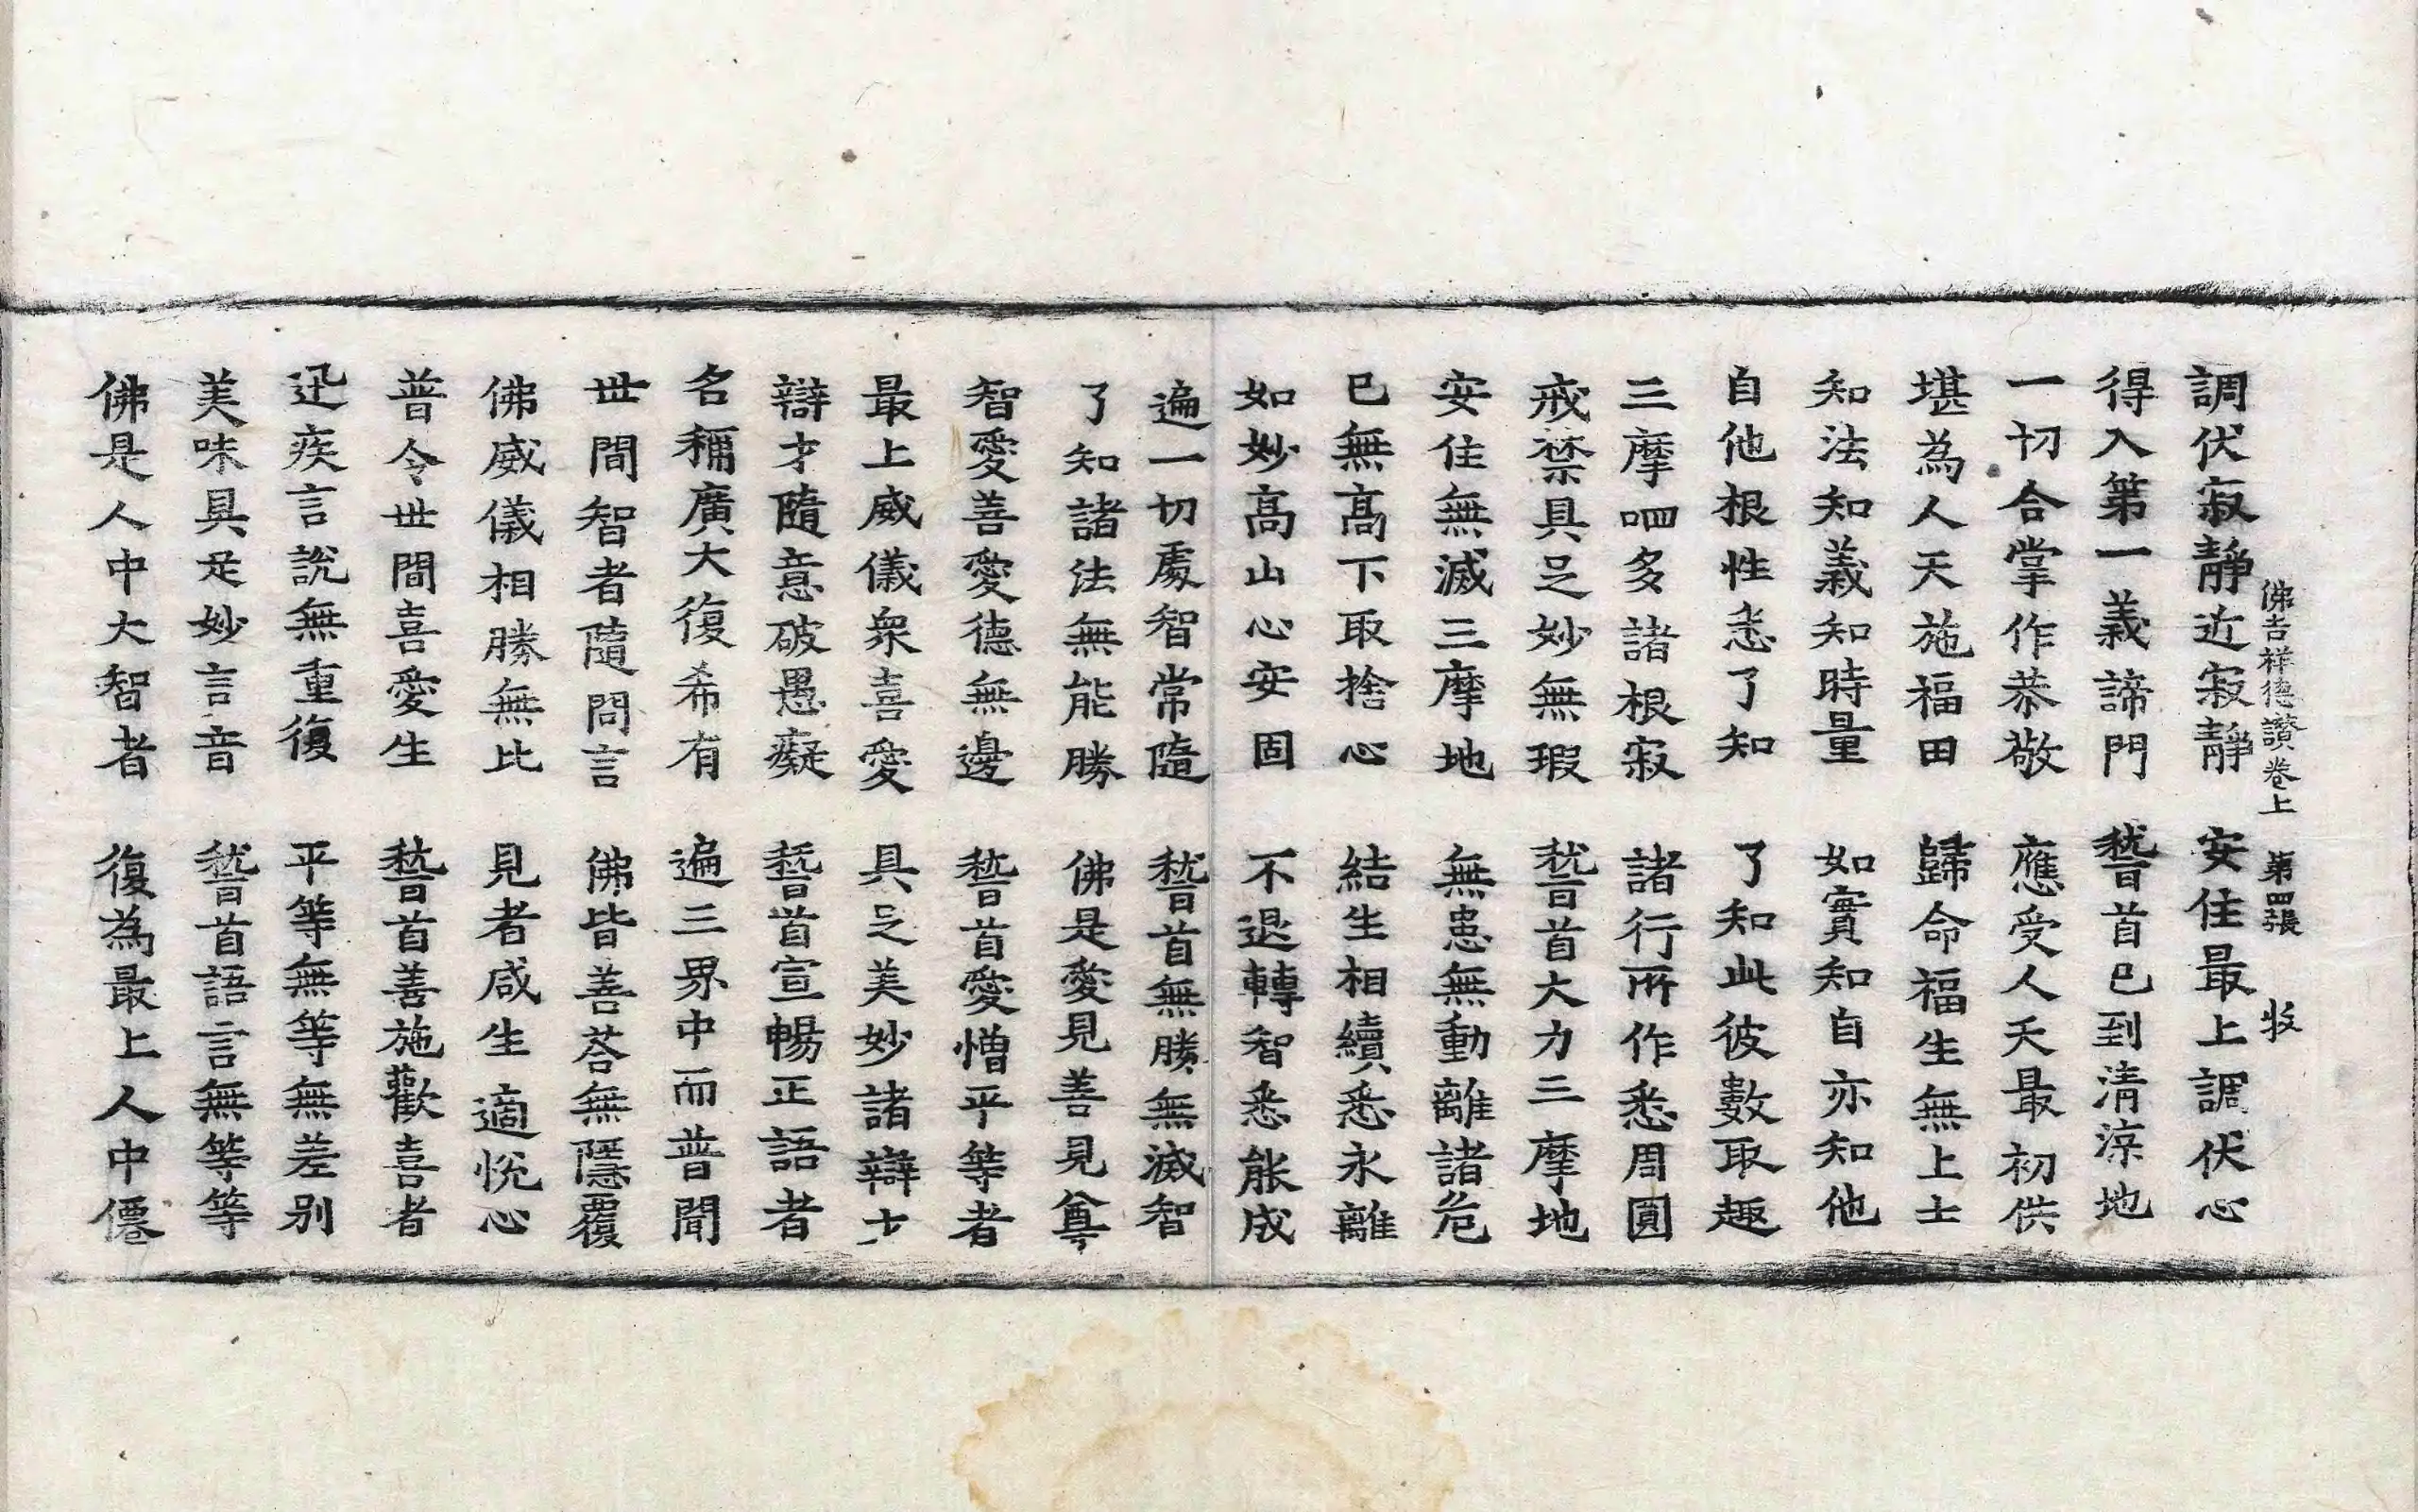 佛吉祥德讃卷上 第四張 㳄
調伏寂靜近寂靜 安住最上調伏心
得入第一義諦門 稽首已到清涼地
一切合掌作恭敬 應受人天最初供
堪為人天施福田 歸命福生無上士
知法知義知時量 如實知自亦知他
自他根性悉了知 了知此彼數取趣
三摩呬多諸根寂 諸行所作悉周圓
戒禁具足妙無瑕 稽首大力三摩地
安住無滅三摩地 無患無動離諸危
已無高下取捨心 結生相續悉永離
如妙高山心安固 不退轉智悉能成
遍一切處智常隨 稽首無勝無滅智
了知諸法無能勝 佛是愛見善見尊
智愛善愛德無邊 稽首愛憎平等者
最上威儀衆喜愛 具足美妙諸辯才
辯才隨意破愚癡 稽首宣暢正語者
名稱廣大復希有 遍三界中而普聞
世間智者隨問言 佛皆善荅無隱覆
佛威儀相勝無比 見者咸生適悅心
普令世間喜愛生 稽首善施歡喜者
迅疾言說無重復 平等無等無差别
美味具足妙言音 稽首語言無等等
佛是人中大智者 復為最上人中僊